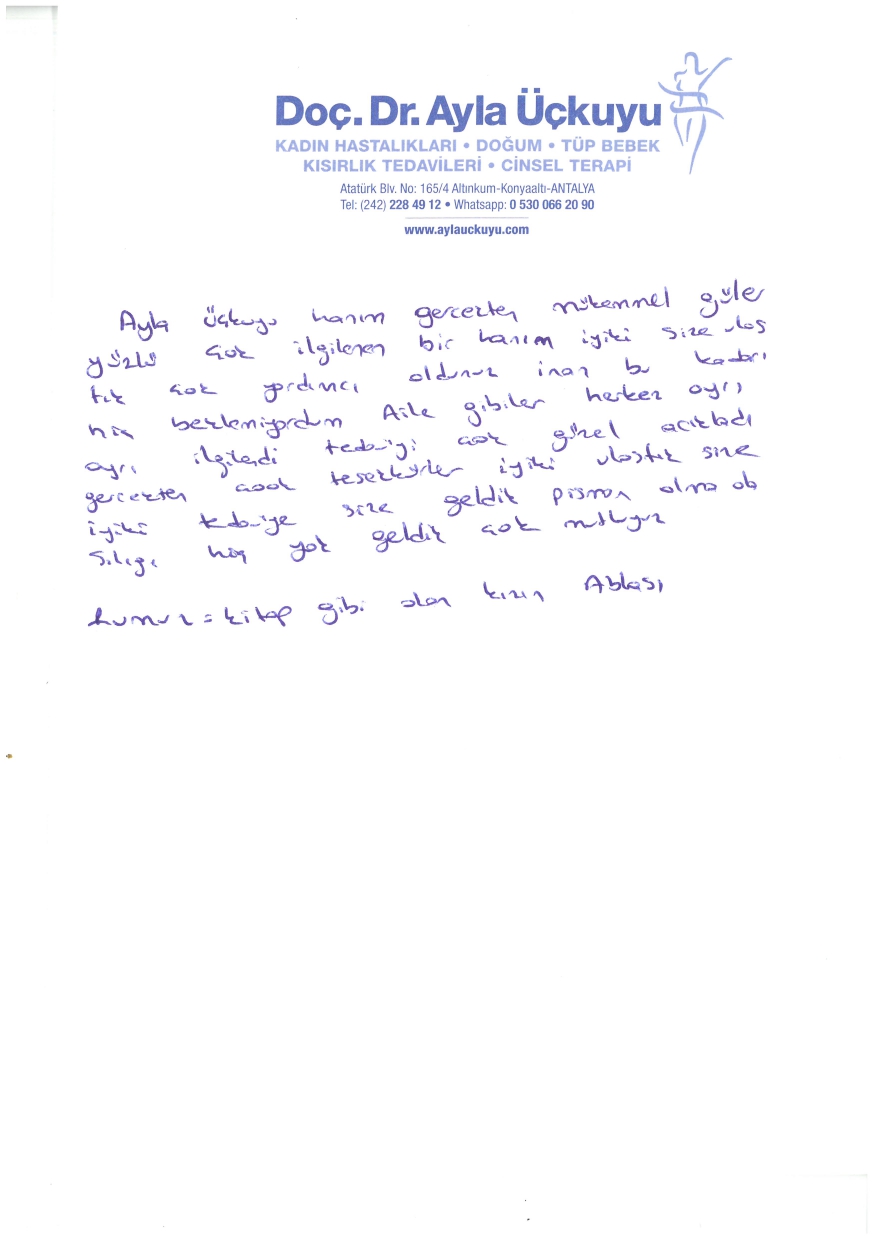 Doç. Dr. Ayla Üçkuyu
KADIN HASTALIKLARI • DOĞUM • TÜP BEBEK
KISIRLIK TEDAVİLERİ • CİNSEL TERAPİ
Atatürk Blv. No: 165/4 Altınkum-Konyaaltı-ANTALYA
Tel: (242) 228 49 12 • Whatsapp: 0 530 066 20 90
www.aylauckuyu.com
Ayla Üçkuyu hanım gerçekten mükemmel güler
yüzlü çok ilgilenen bir hanım iyiki size ulaş
tık çok yardımcı oldunuz inan bu kadarı
hiç beklemiyordum Aile gibiler herkez ayrı
ayrı ilgilendi tedaviyi çok güzel acıkladı
gercekten cook teserkürler iyiki ulastık size
iyiki tedaviye size geldik pisman olma ola
sılıgı hiç yok geldik çok mutluyuz
kitap gibi olan kızın Ablası